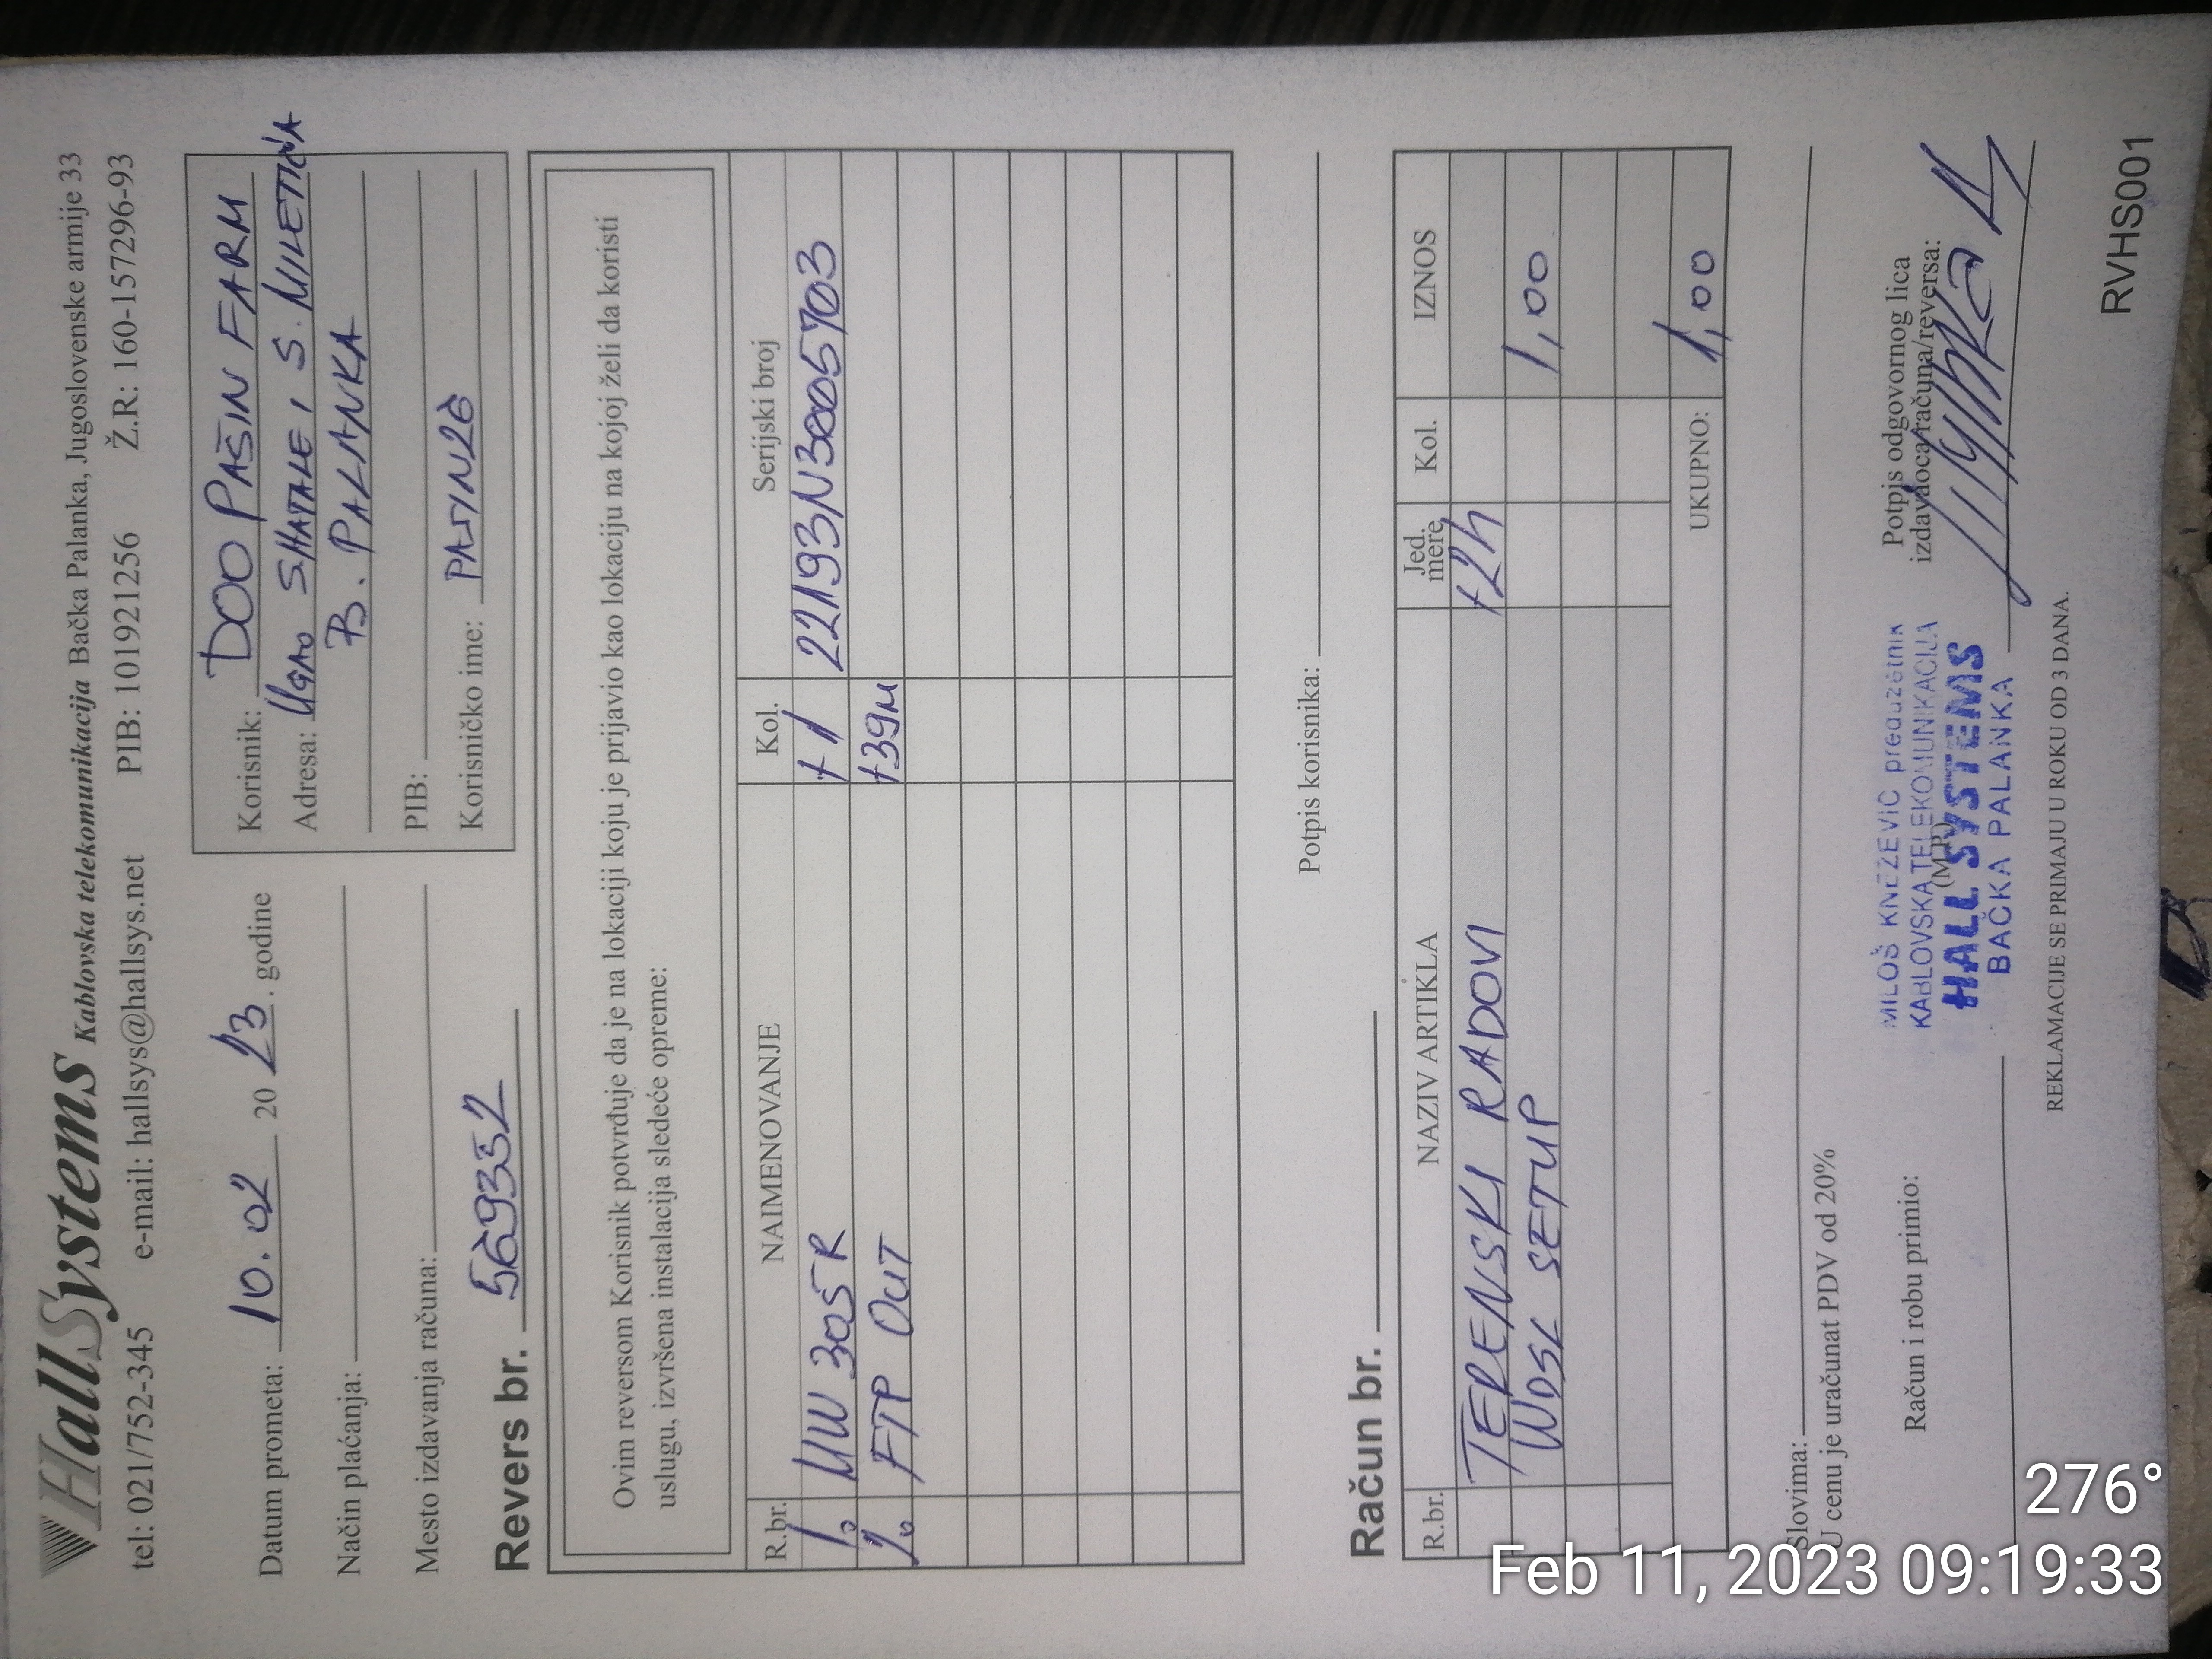 HallSystems Kablovska telekomunikacija Bačka Palanka, Jugoslovenske armije 33
tel: 021/752-345 e-mail: hallsys@hallsys.net PIB: 101921256 Ž.R: 160-157296-93
Datum prometa: 10.02 2023. godine
Način plaćanja:
Mesto izdavanja računa:
Korisnik: DOO PAŠIN FARM
Adresa: UGAO S.MATALE I S. MILETIĆA
B. PALANKA
PIB:
Korisničko ime:
Revers br. 569352
Ovim reversom Korisnik potvrđuje da je na lokaciji koju je prijavio kao lokaciju na kojoj želi da koristi
uslugu, izvršena instalacija sledeće opreme:
R.br. NAIMENOVANJE Kol. Serijski broj
1. MW 305R +1 22193N3005703
2. FTP OUT +39m
Potpis korisnika:
Račun br.
R.br. NAZIV ARTIKLA Jed. mere Kol. IZNOS
TERENSKI RADOVI +2h
WDSL SETUP 1,00
UKUPNO: 1,00
Slovima:
U cenu je uračunat PDV od 20%
Račun i robu primio:
MILOŠ KNEŽEVIĆ preduzetnik
KABLOVSKA TELEKOMUNIKACIJA
(M.P.)
HALL SYSTEMS
BAČKA PALANKA
Potpis odgovornog lica
izdavaoca računa/reversa:
REKLAMACIJE SE PRIMAJU U ROKU OD 3 DANA.
RVHS001
276°
Feb 11, 2023 09:19:33